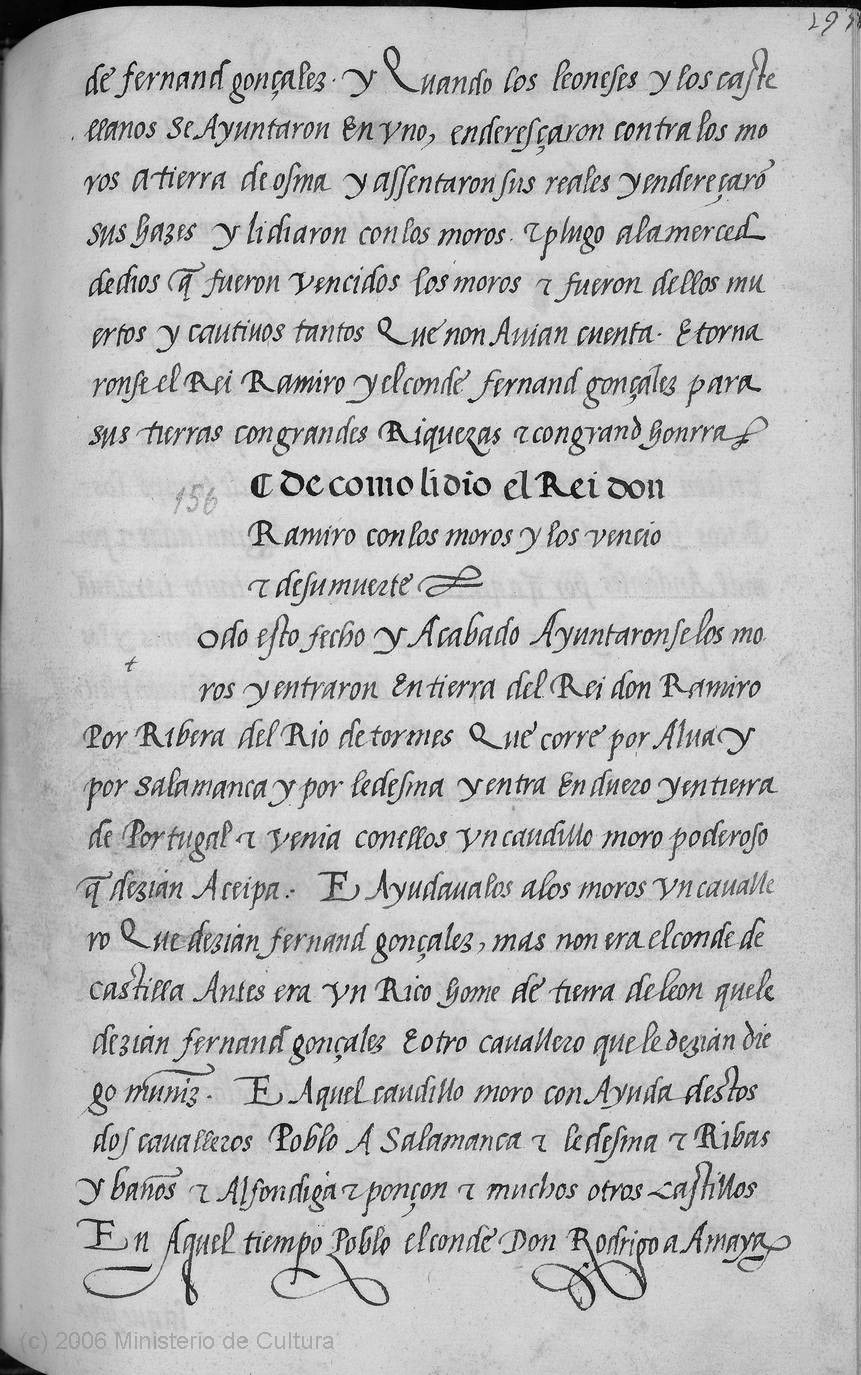 de fernand gonçalez. y Quando los leoneses y los caste
llanos se Ayuntaron En vno, enderesçaron contra los mo
ros a tierra de osma y assentaron sus reales y endereçarõ
sus hazes y lidiaron con los moros. τ plugo a la merced
de dios q̃ fueron vencidos los moros τ fueron dellos mu
ertos y cautiuos tantos Que non Auian cuenta. E torna
ronse el Rei Ramiro y el conde fernand gonçalez para
sus tierras con grandes Riquezas τ con grand honrra
156
C de como lidio el Rei don
Ramiro con los moros y los vencio
τ de su muerte
odo esto fecho y Acabado Ayuntaronse los mo
t
ros y entraron En tierra del Rei don Ramiro
Por Ribera del Rio de tormes Que corre por Alua y
por Salamanca y por ledesma y entra En duero y en tierra
de Portugal τ venia con ellos vn caudillo moro poderoso
q̃ dezian Aceipa.. E Ayudaualos a los moros vn caualle
ro Que dezian fernand gonçalez, mas non era el conde de
castilla Antes era vn Rico home de tierra de leon que le
dezian fernand gonçalez E otro cauallero que le dezian die
go muñiz. E Aquel caudillo moro con Ayuda destos
dos caualleros Poblo A Salamanca τ ledesma τ Ribas
y baños τ Alfondiga τ ponçon τ muchos otros castillos
En Aquel tiempo Poblo el conde Don Rodrigo a Amaya
(c) 2006 Ministerio de Cultura